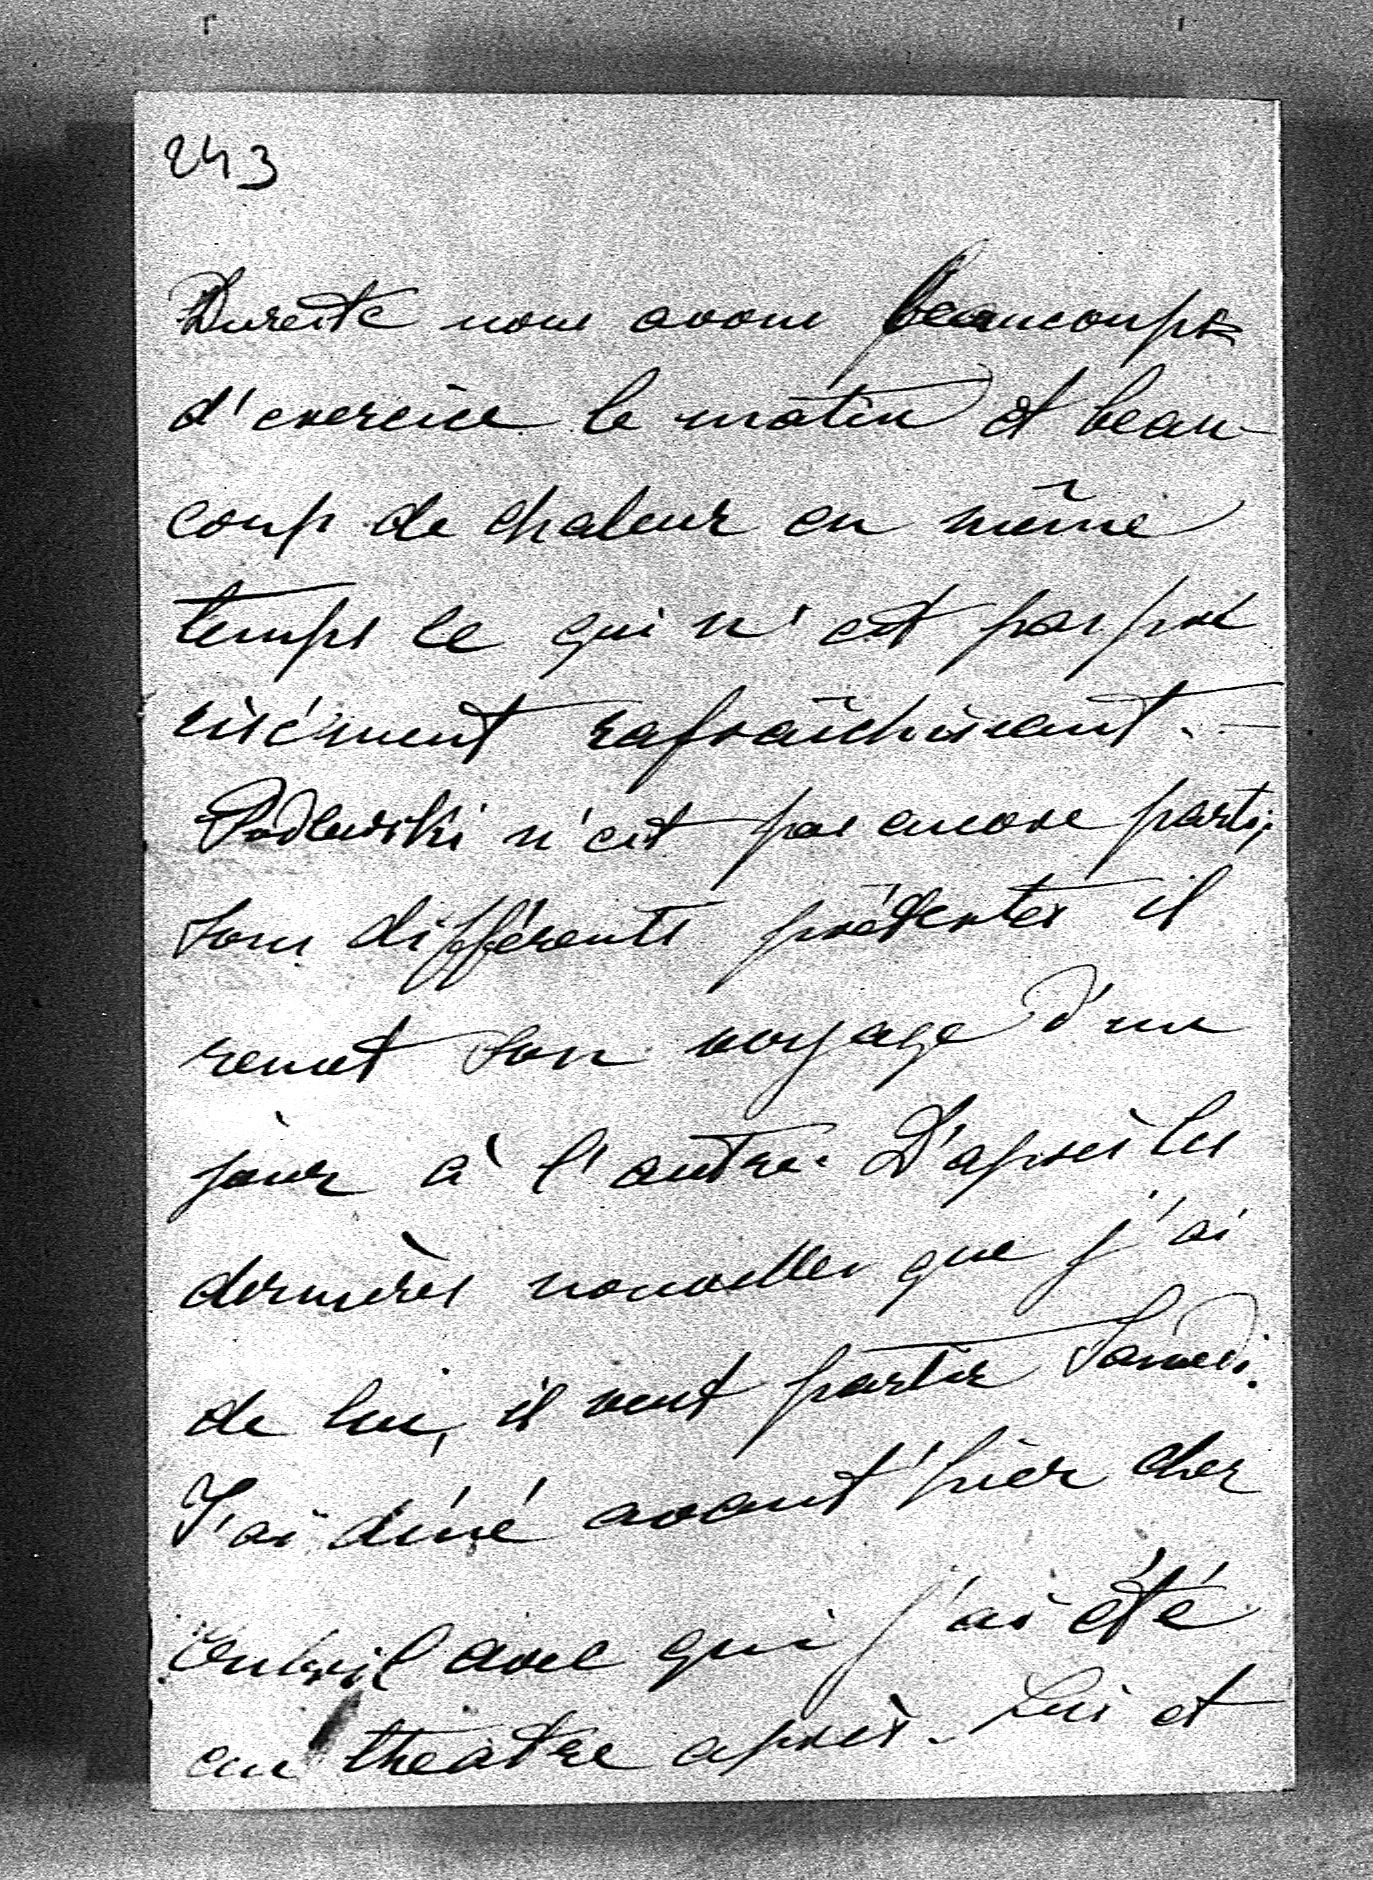 243
Dureste nous avons beaucoup
d'exercice le matin et beau-
coup de chaleur en même
temps ce qui n'est pas pré
cisément rafraîchissant. —
Podlewski n'est pas encore parti;
sous différents prétextes il
remet son voyage d'un
jour à l'autre. D'après les
dernières nouvelles que j'ai
de lui, il veut partir Samedi.
J'ai diné avant'hier chez
Oubril avec qui j'ai été
au théatre après. Lui et